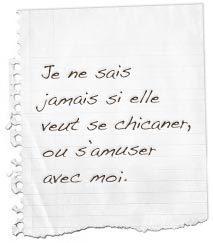 Je ne sais
jamais si elle
veut se chicaner,
ou s'amuser
avec moi.